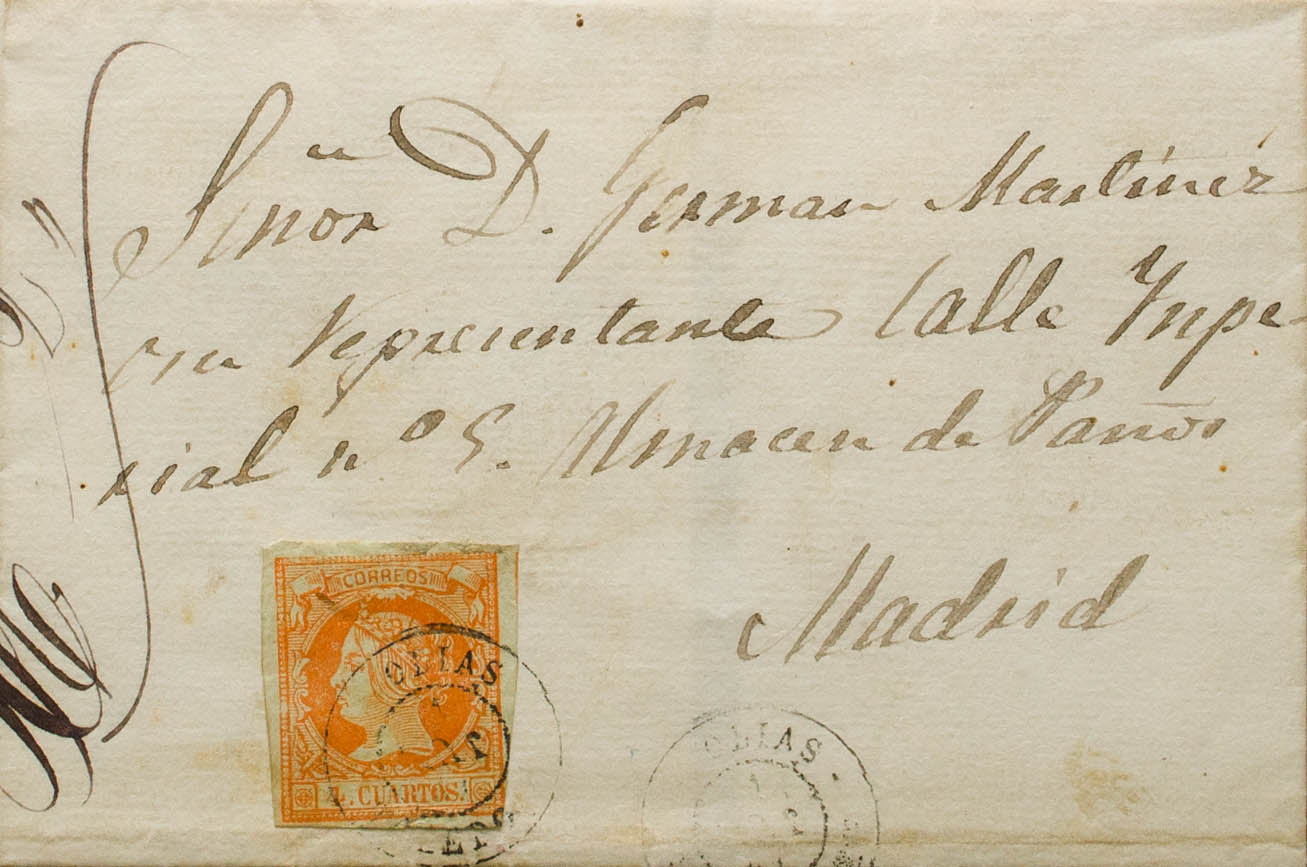 Señor D. German Martinez
Representante Calle Ynpe-
rial nº 5. Almacen de Paños
Madrid
CORREOS
4 CUARTOS.
OLIAS
OLIAS